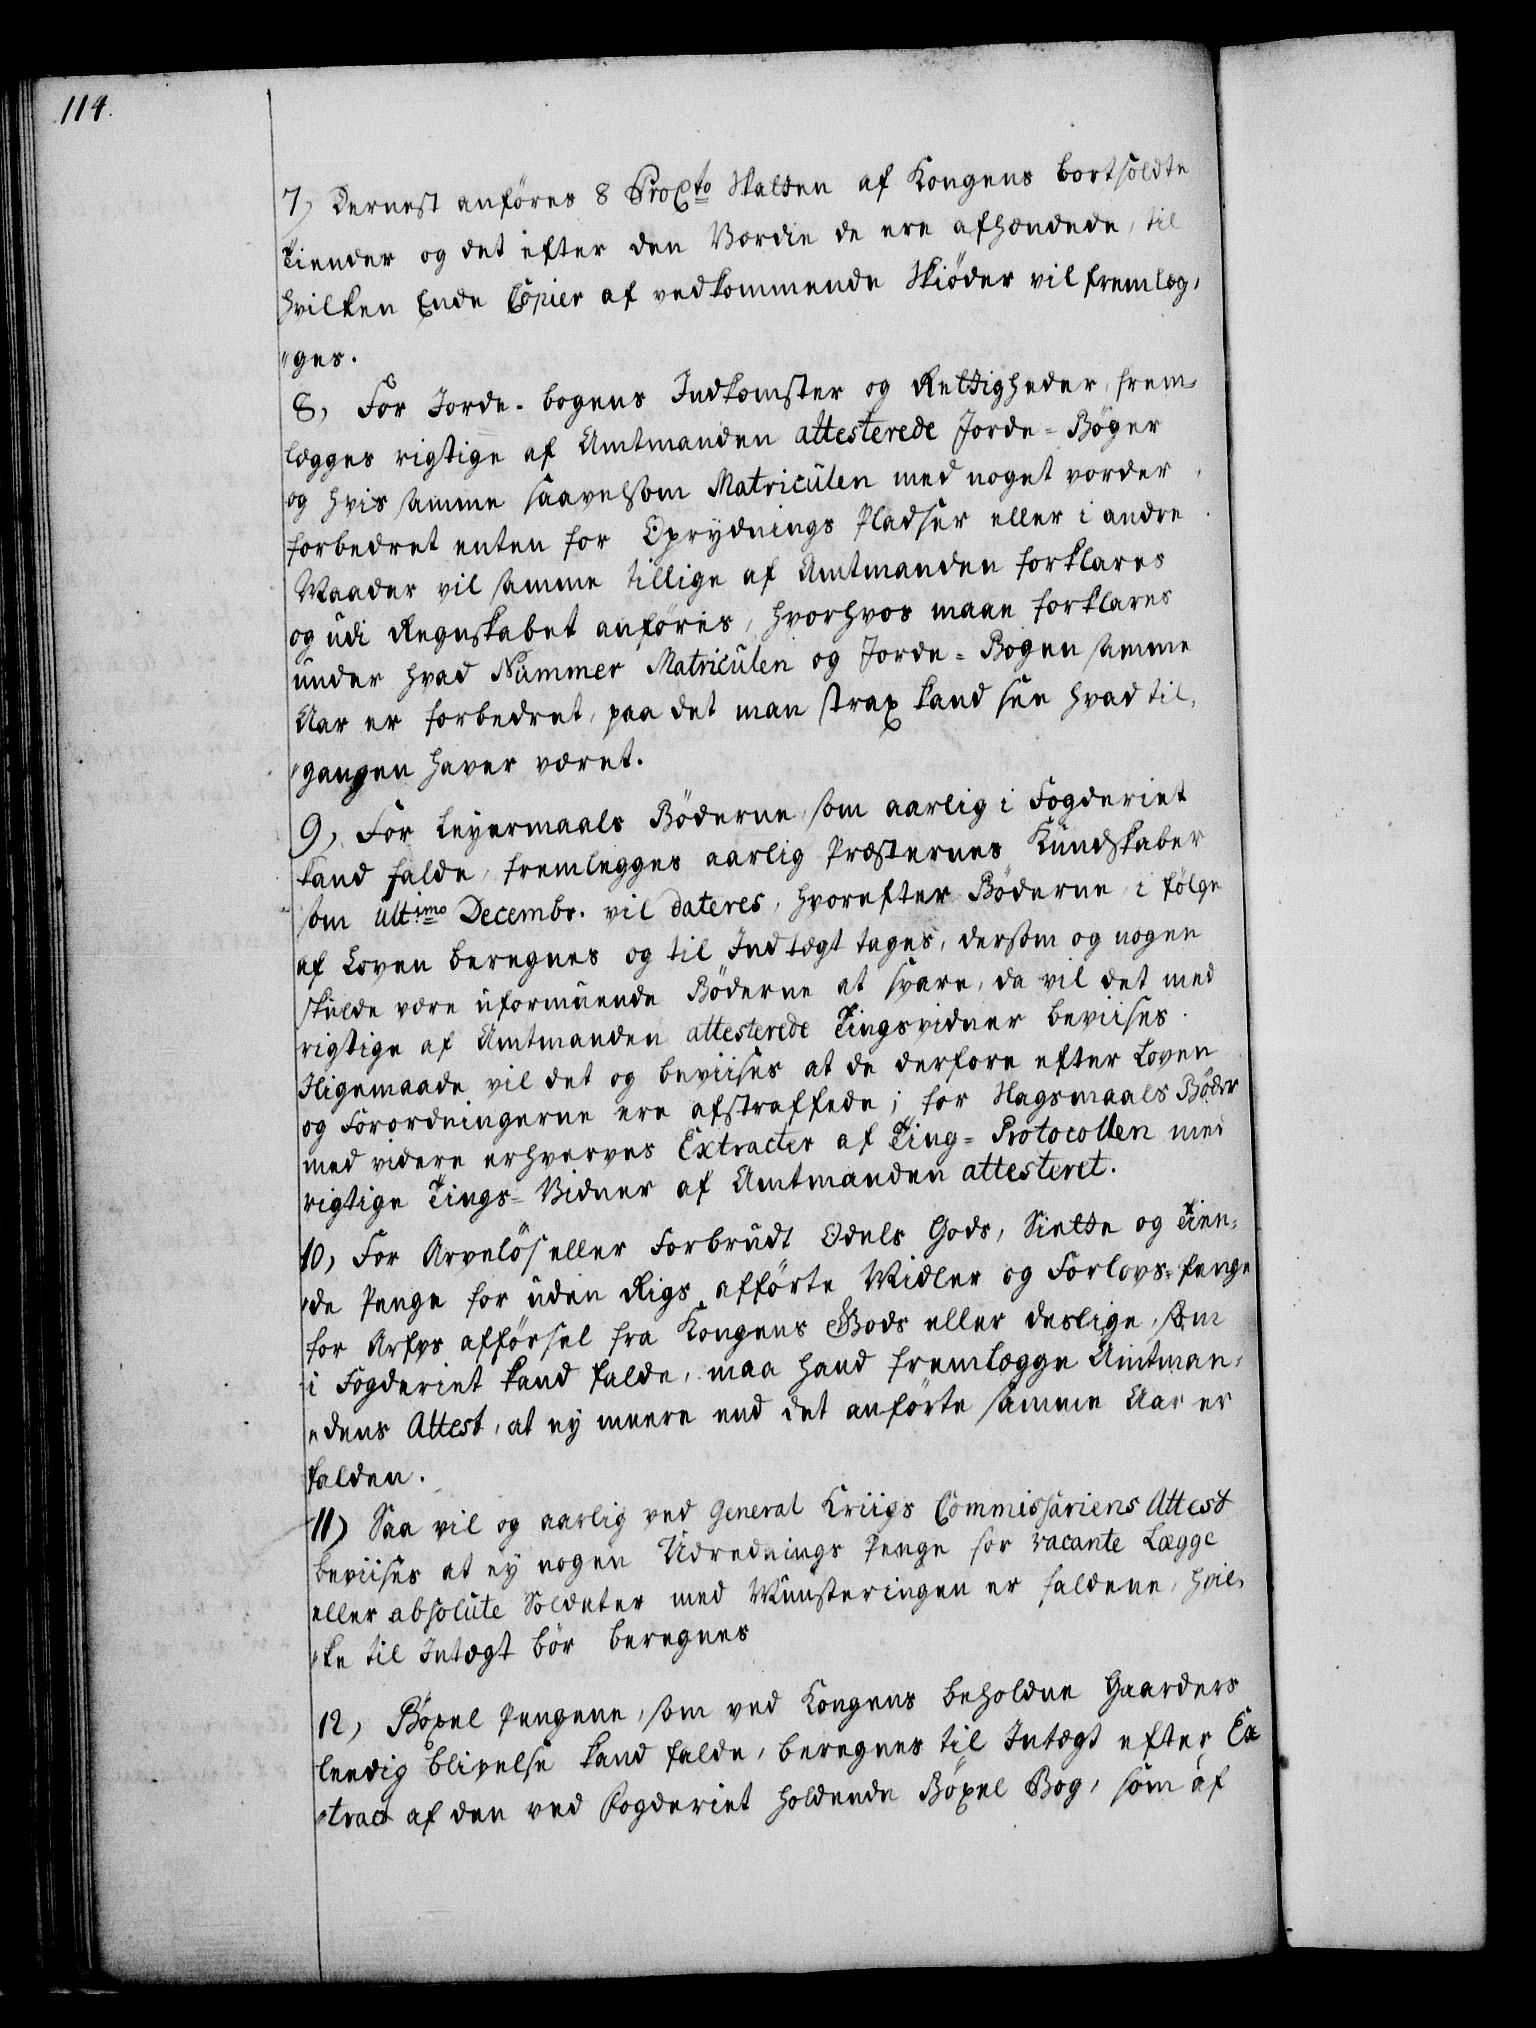 114.
7, Dernest anföres 8 ProCto Skatten af Kongens bortsoldte
Tiender og det efter den Værdie de ere afhændede, til
hvilken Ende Copier af vedkommende Skiöder vil fremlæg,
"ges.
8, For Jorde-bogens Indkomster og Rettigheder, frem,
lægges rigtige af Amtmanden attesterede Jorde-Böger
og hvis samme saavelsom Matriculen med noget vorder
forbedret enten for Oprydnings Pladser eller i andre
Maader vil samme tillige af Amtmanden forklares
og udi Regnskabet anföris, hvorhvos maae forklares
under hvad Nummer Matriculen og Jorde-Bogen samme
Aar er forbedret, paa det man strax kand see hvad til,
"gangen haver været.
9, For Leyermaals Böderne, som aarlig i Fogderiet
kand falde, fremlegges aarlig Præsternes Kundskaber
som ultimo Decembr. vil dateres, hvorefter Böderne, i fölge
af Loven beregnes og til Indtægt tages, dersom og nogen
skulde være uformuende Böderne at svare, da vil det med
rigtige af Amtmanden attesterede Tingsvidner beviises.
Iligemaade vil det og beviises at de derfore efter Loven
og Forordningerne ere afstraffede; for Slagsmaals Böder
med videre erhverves Extracter af Ting-Protocollen med
rigtige Tings-Vidner af Amtmanden attesteret.
10, For Arvelös eller Forbrudt Odels Gods, Siette og Tien,
"de Penge for uden Rigs afförte Midler og Forlovs-Penge
for Arfvs afförsel fra Kongens Gods eller deslige, som
i Fogderiet kand falde, maa hand fremlægge Amtman,
"dens Attest, at ey meere end det anförte samme Aar er
falden.
11) Saa vil og aarlig ved General Kriigs Commissariens Attest
beviises at ey nogen Udrednings Penge for vacante Lægge
eller absolute Soldater med Munsteringen er faldene, hvil,
"ke til Intægt bör beregnes
12, Böxel Pengene, som ved Kongens beholdne Gaarders
leedig blivelse kand falde, beregnes til Intægt efter Ex
"tract af den ved Fogderiet holdende Böxel Bog, som af